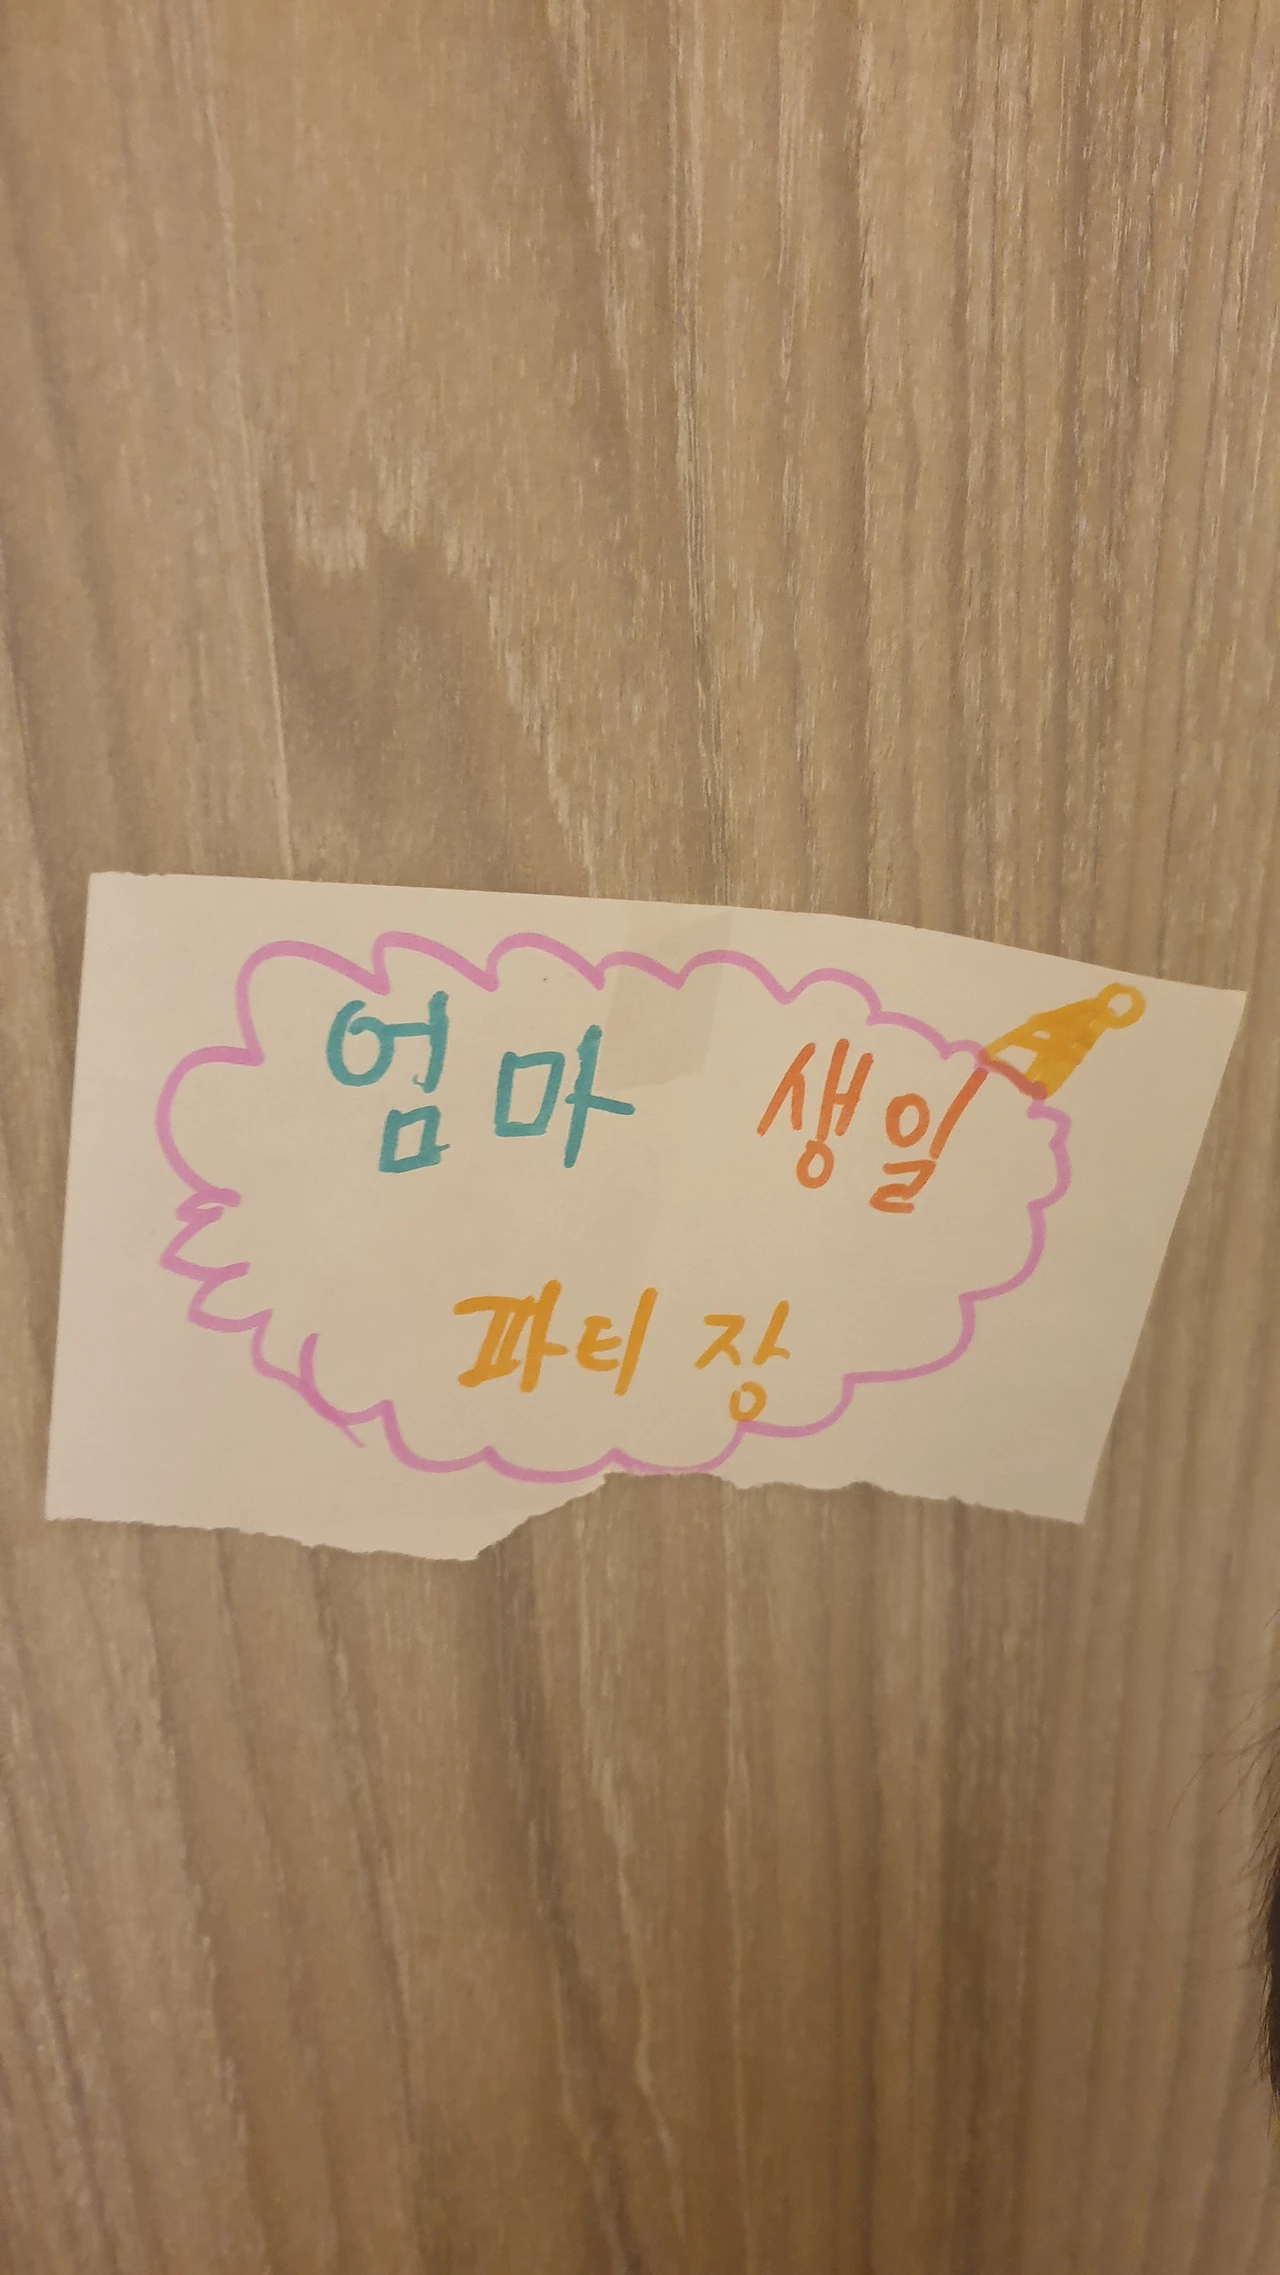 엄마 생일
파티 장